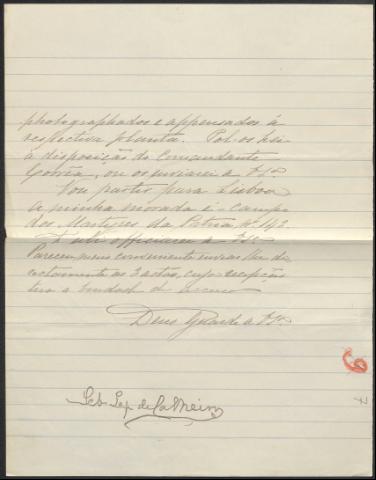 photographados e appensados á
respectiva planta. Pol-os hei
á disposição do Comandante
Corrêa, ou os enviarei a V. Sª
Vou partir para Lisboa
A minha morada é Campo
dos Martyres da Patria Nº 143
D'ali officiarei a V. Sª
Pareceu-me conveniente enviar lhe di
rectamente os 3 autos, cuja recepção
terá a bondade de accusar
Deus Guarde a V. Sª
Seb. Lop. de Calheiros
6